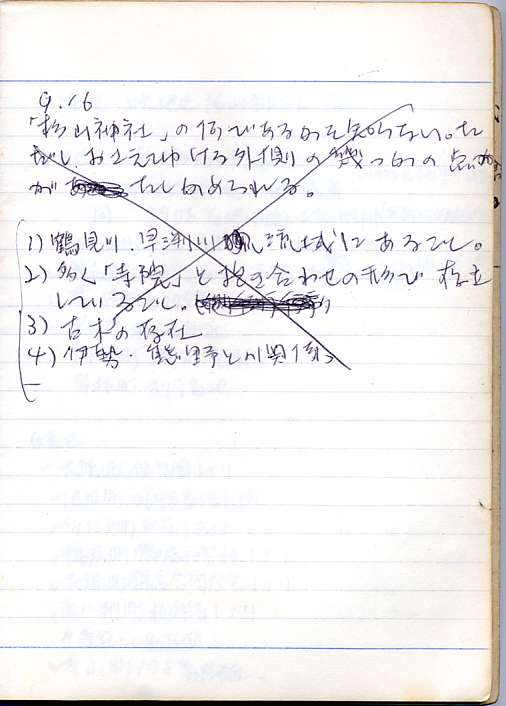 9.16
「杉山神社」の何であるかを知らない。た
だし、おさえゆける外側の幾つかの点
が たしかめられる。
1) 鶴見川、早渕川 流域にあること。
2) 多く「寺院」と抱き合わせの形で存立
していること。
3) 古木の存在
4) 伊勢・熊野と